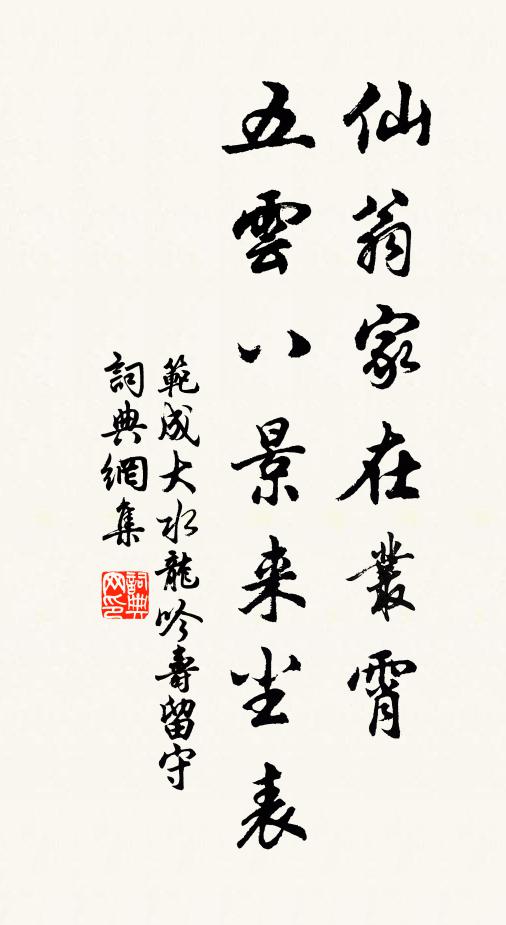 仙翁家在叢霄
五雲八景来尘表
範成大水龍吟壽留守
詞典網集
詞典网印